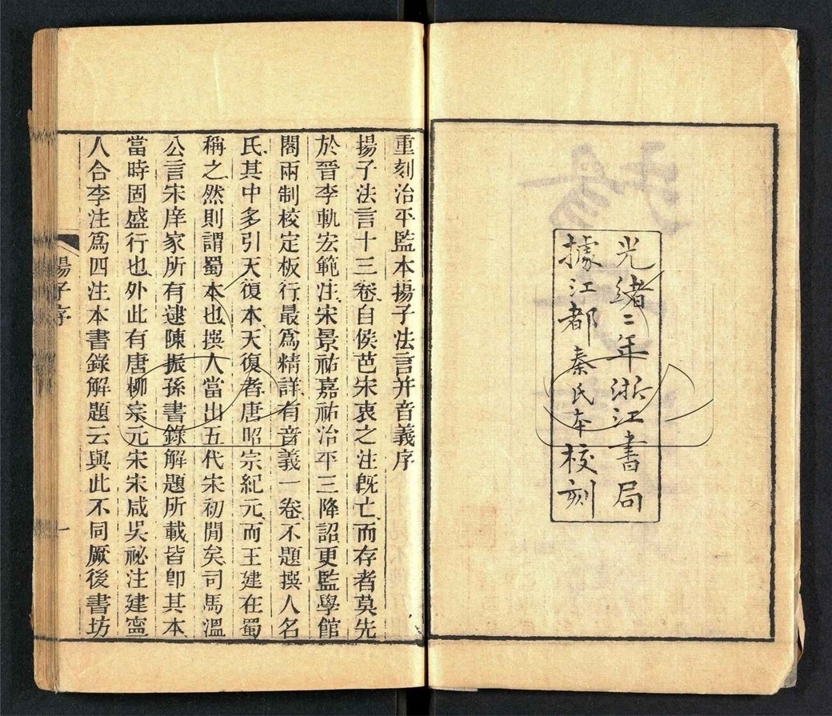 光緒二年浙江書局
據江都秦氏本校刻
重刻治平監本揚子法言并音義序
揚子法言十三卷自侯芭宋衷之注旣亡而存者莫先
於晉李軌宏範注宋景祐嘉祐治平三降詔更監學館
閣兩制校定板行最爲精詳有音義一卷不題撰人名
氏其中多引天復本天復者唐昭宗紀元而王建在蜀
稱之然則謂蜀本也撰人當出五代宋初閒矣司馬溫
公言宋庠家所有逮陳振孫書錄解題所載皆卽其本
當時固盛行也外此有唐柳宗元宋宋咸吳祕注建寧
人合李注爲四注本書錄解題云與此不同厥後書坊
揚子序
一